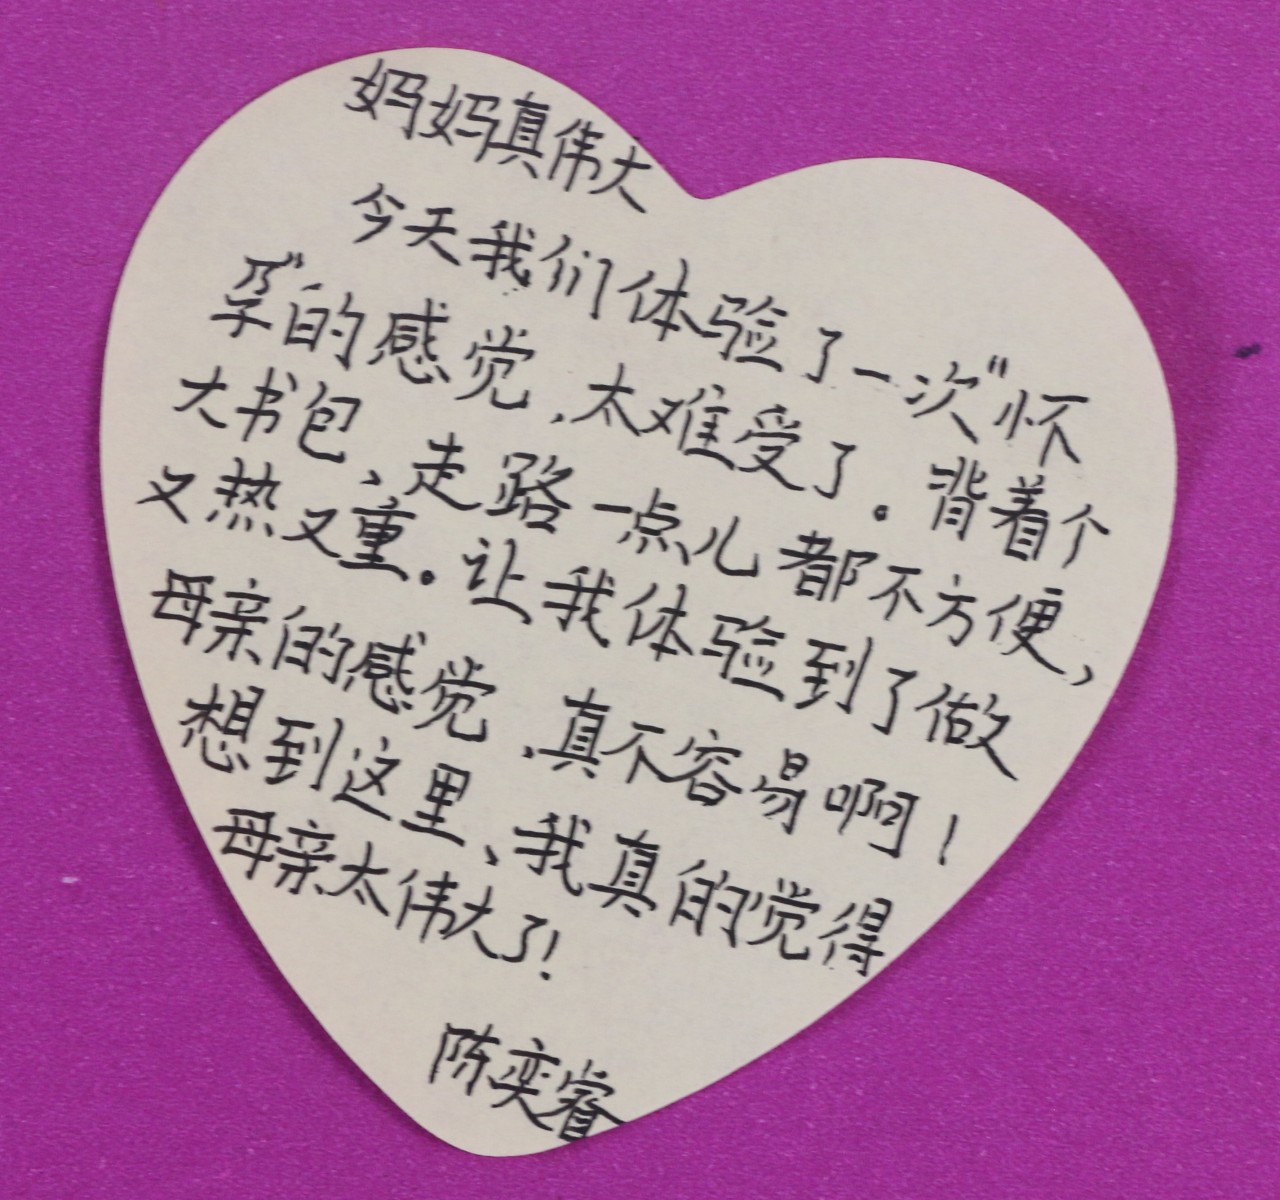 妈妈真伟大
今天我们体验了一次“怀
孕”的感觉，太难受了。背着个
大书包、走路一点儿都不方便，
又热又重。让我体验到了做
母亲的感觉，真不容易啊！
想到这里、我真的觉得
母亲太伟大了！
陈奕睿